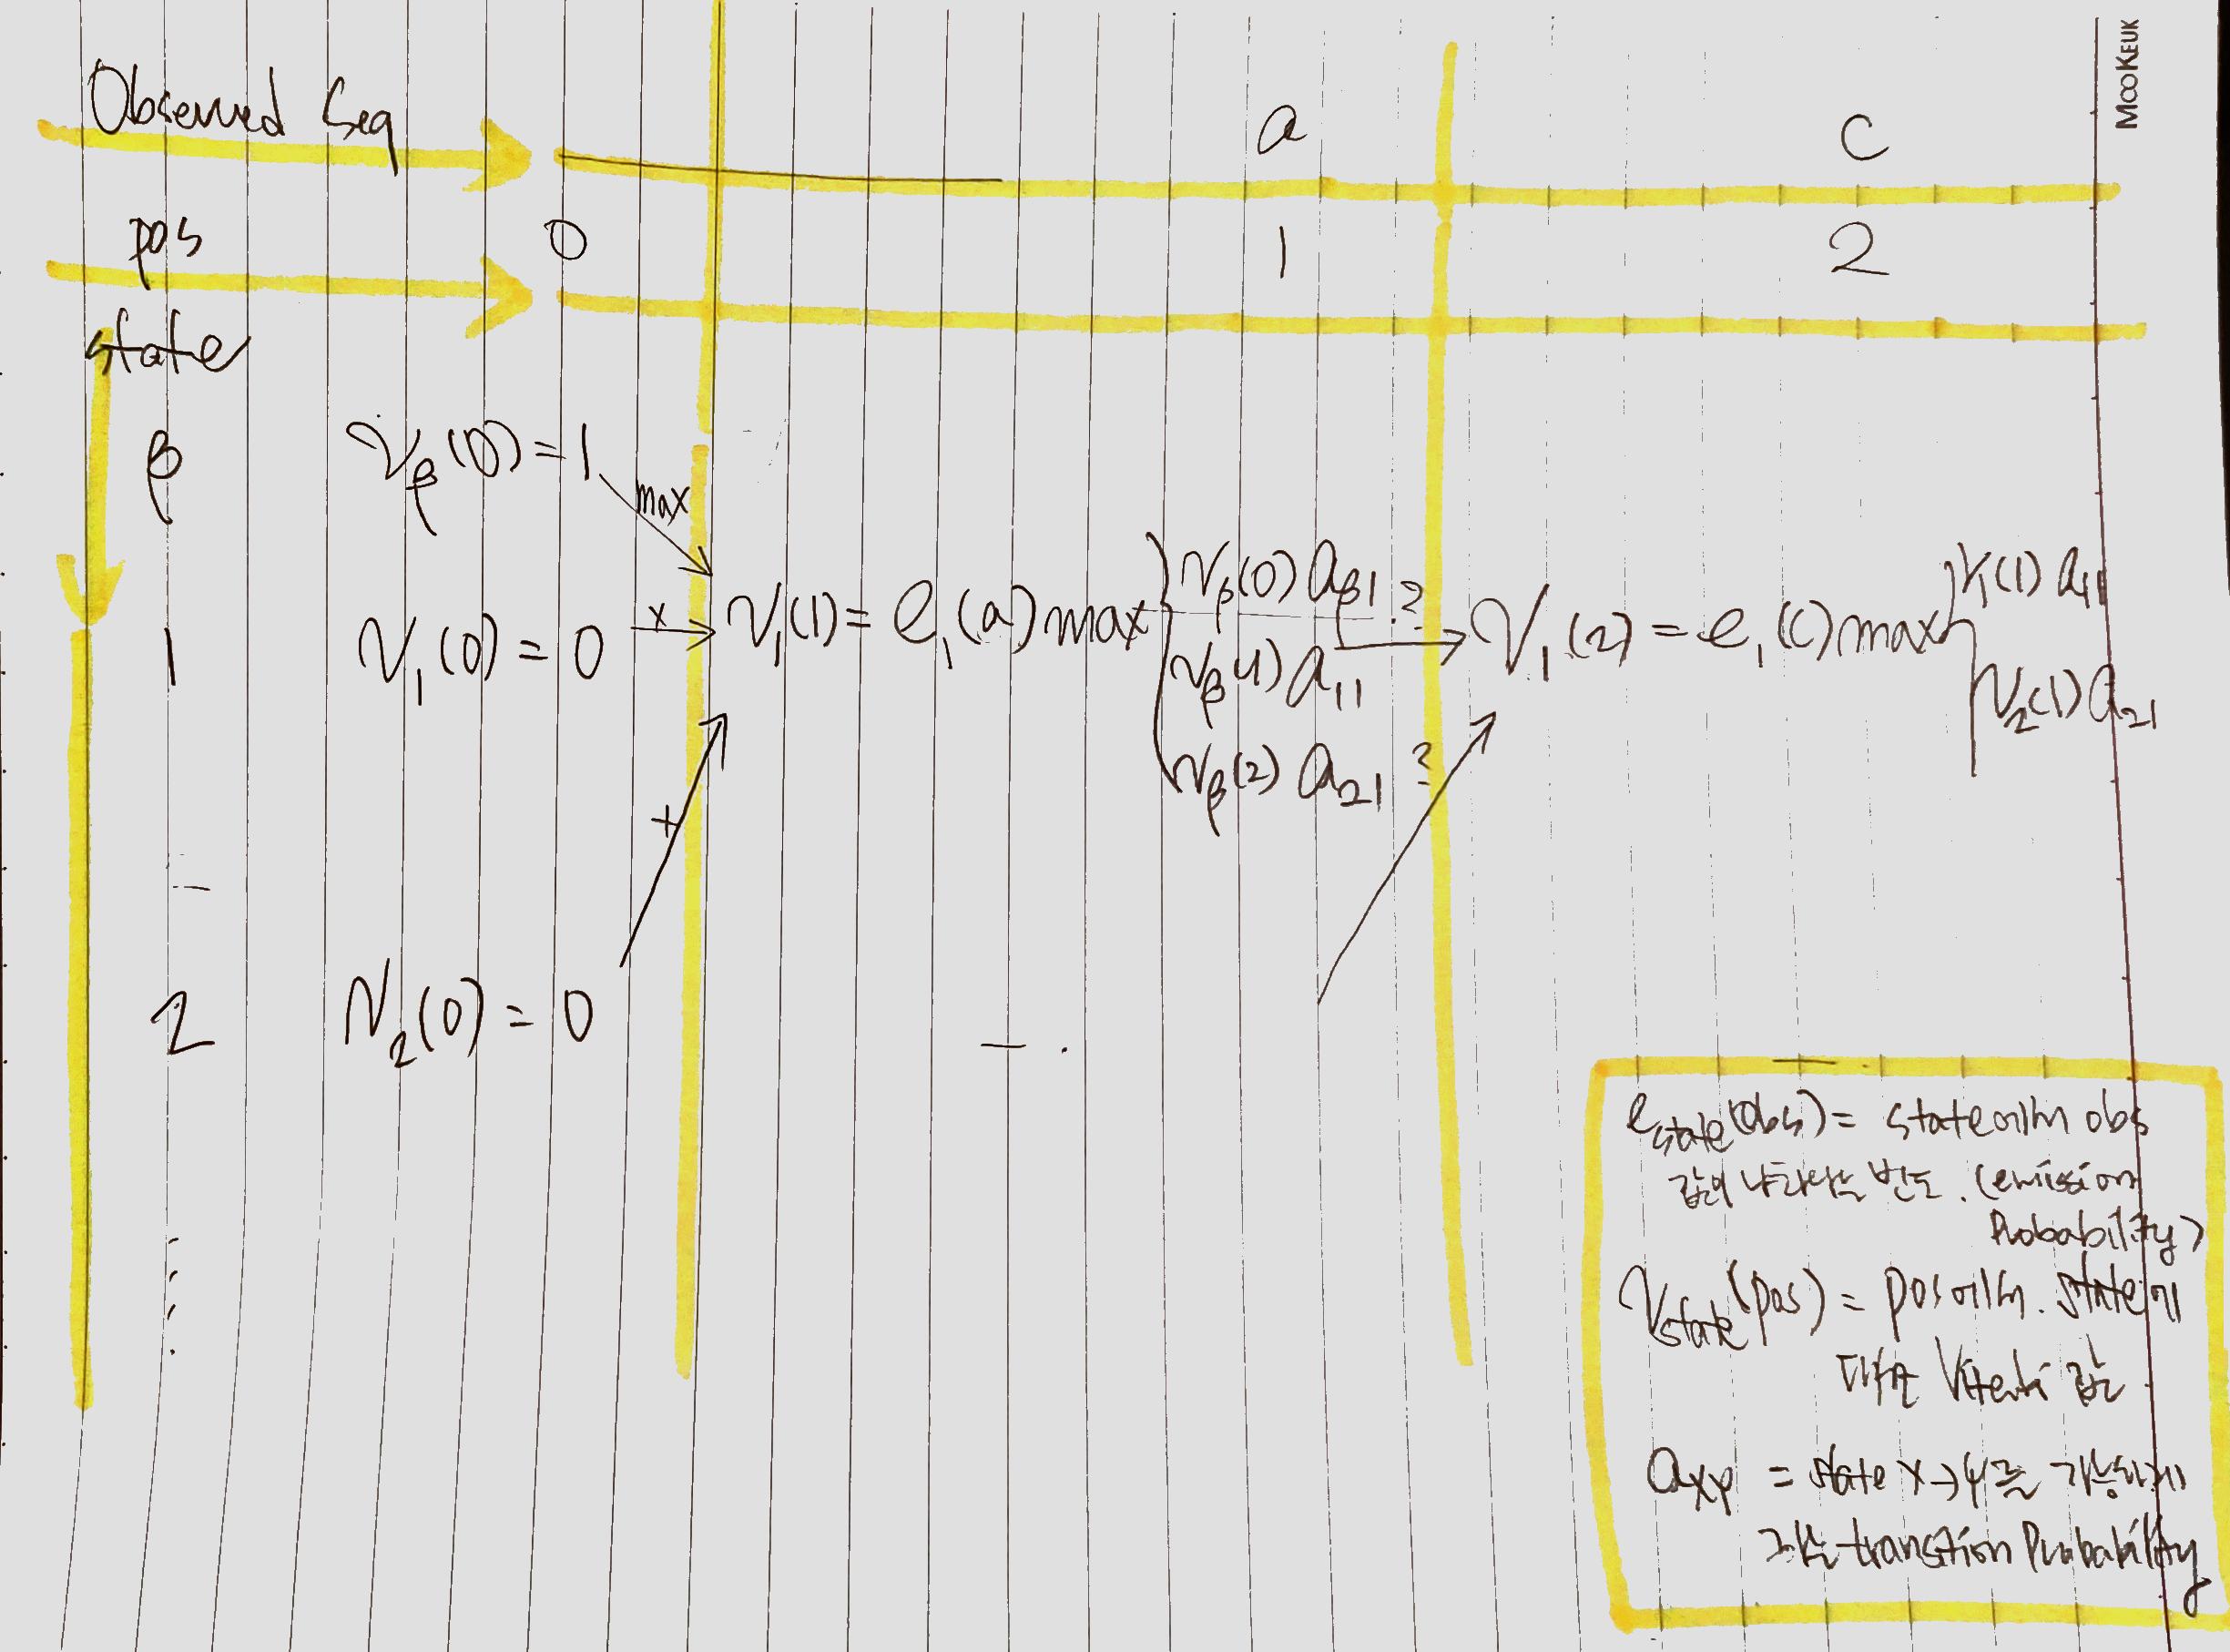 MOOKEUK
Observed Seq a c
pos 0 1 2
state
β V_β(0) = 1
max
1 V_1(0) = 0 x V_1(1) = e_1(a) max { V_β(0) a_β1 ? V_1(2) = e_1(c) max { V_1(1) a_11
V_β(1) a_11
V_2(1) a_21
V_β(2) a_21 ?
x
2 V_2(0) = 0
e_state(obs) = state에서 obs
값이 나타나는 빈도. (emission
Probability)
V_state(pos) = pos에서. state에
대한 Viterbi 값
a_xy = state x → y로 가능하게
transition Probability